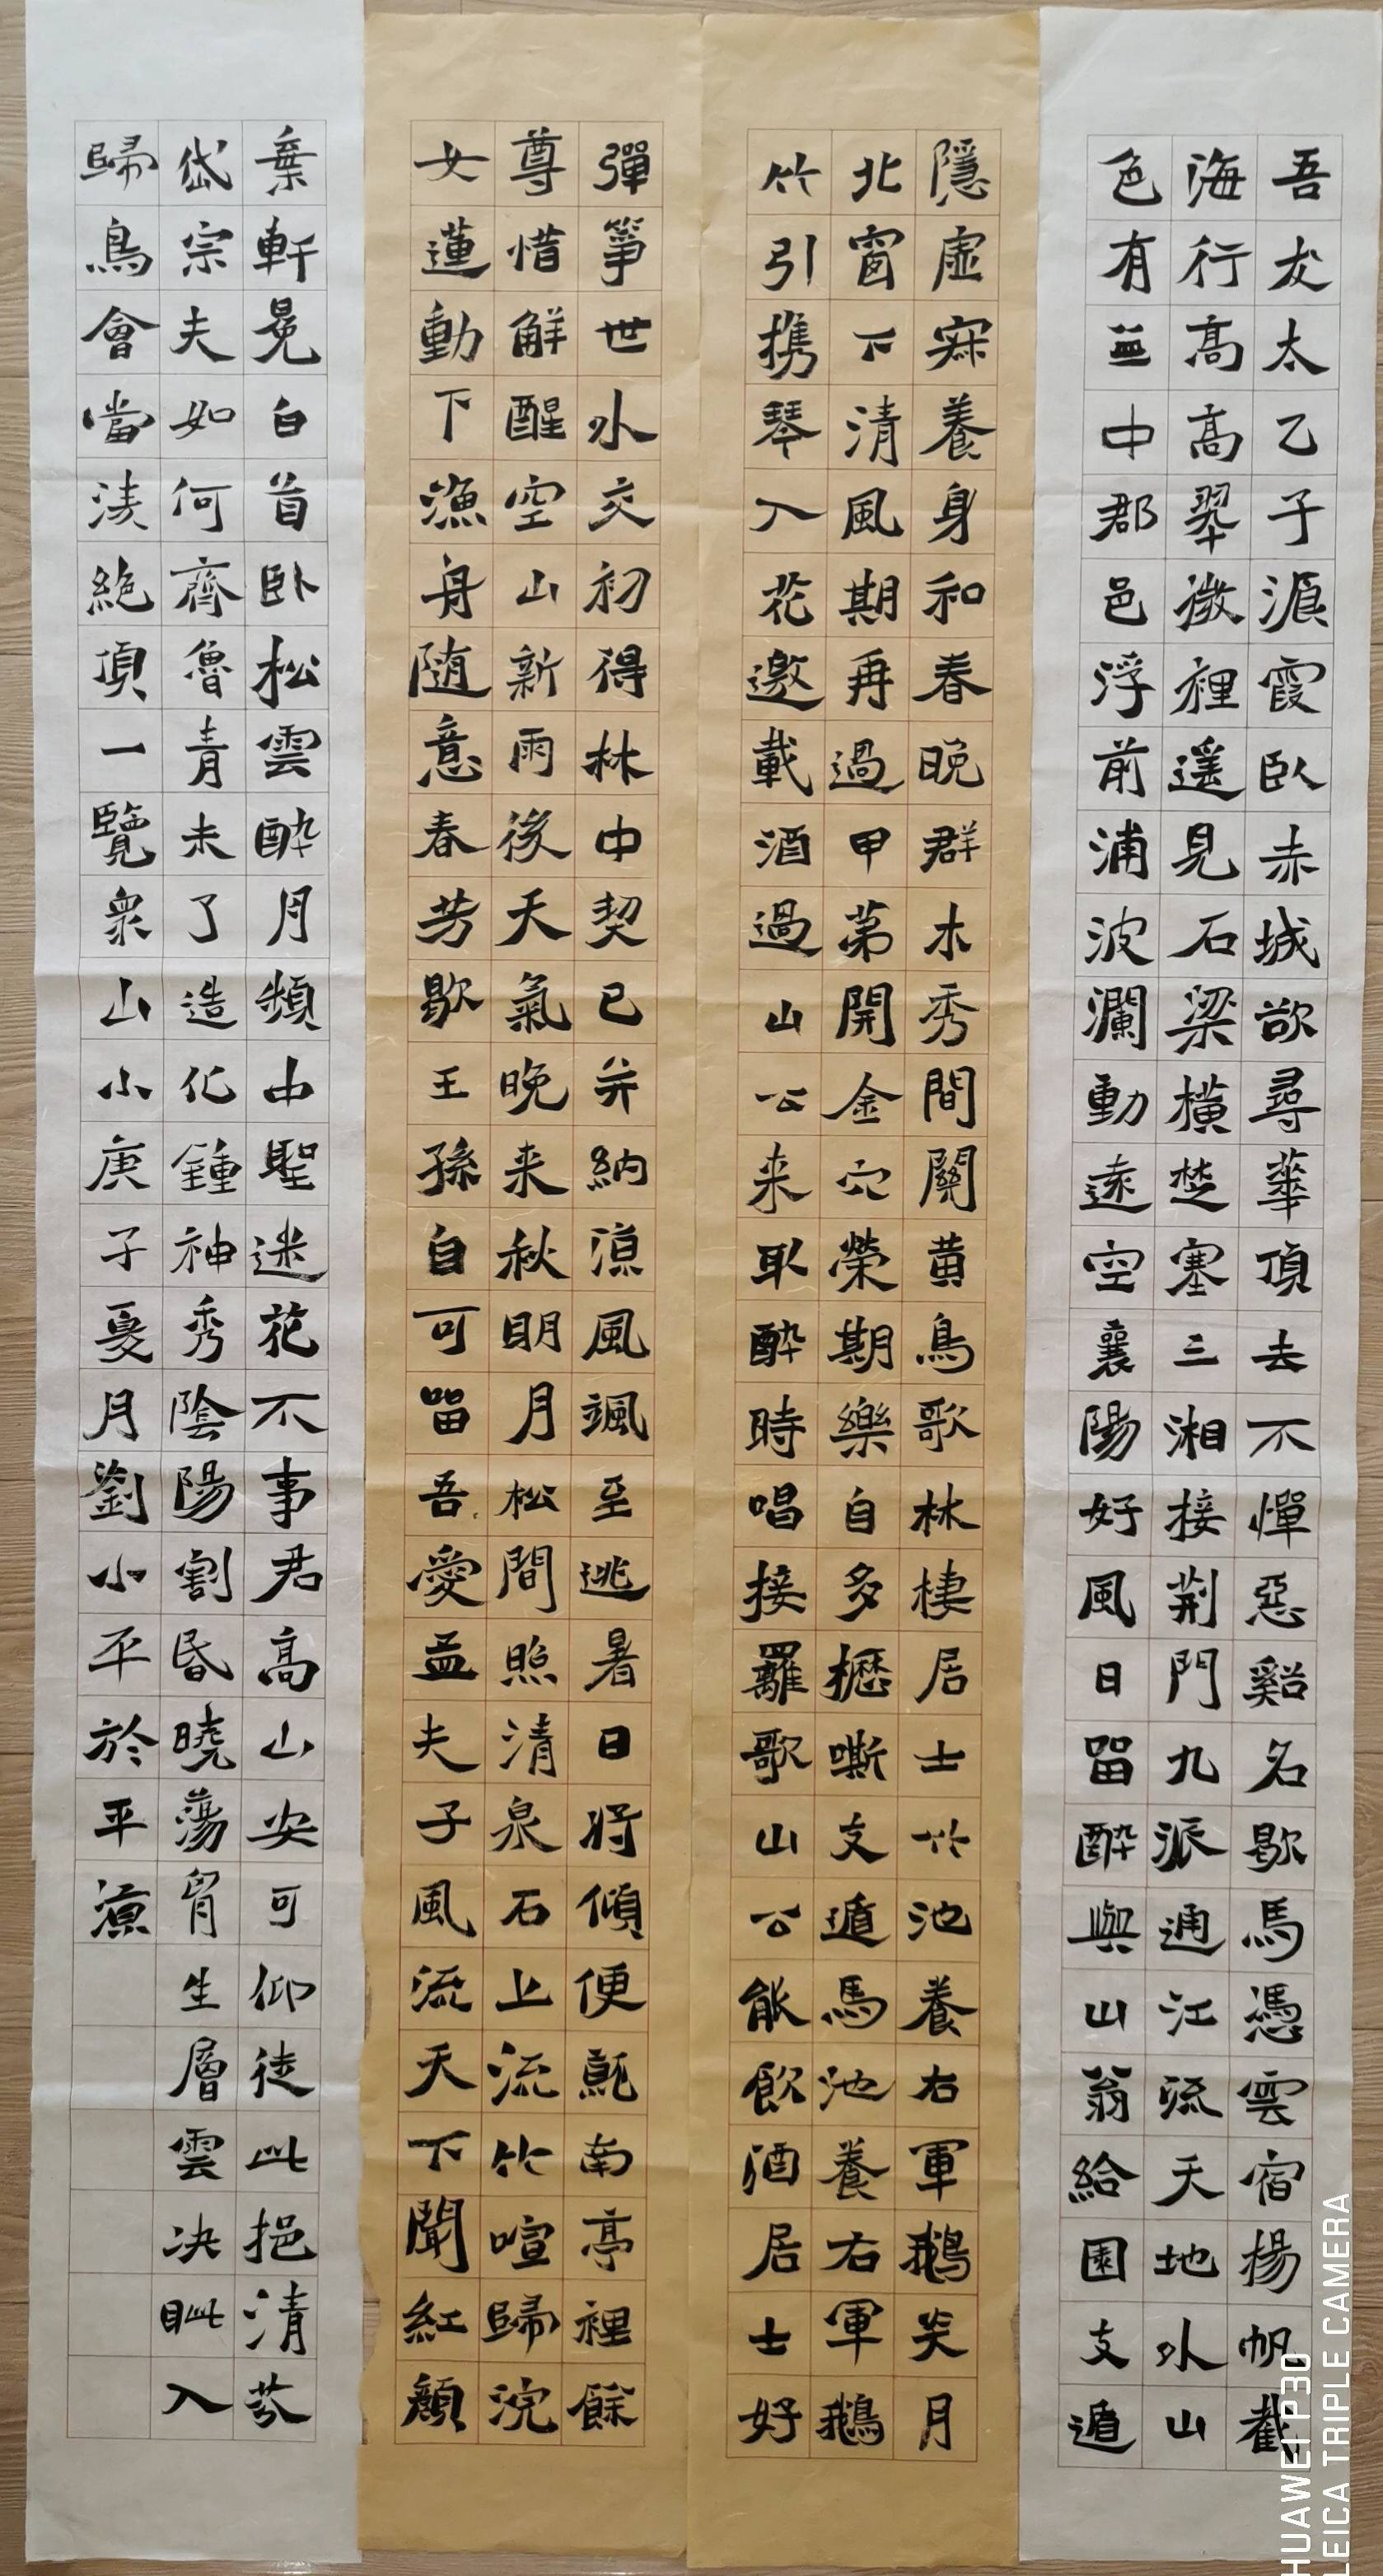 吾友太乙子湌霞臥赤城欲尋華頂去不憚惡谿名歇馬憑雲宿揚帆截
海行高高翠微裡遥見石梁橫楚塞三湘接荊門九派通江流天地外山
色有無中郡邑浮前浦波瀾動遠空襄陽好風日留醉與山翁給園支遁
隱虛寂養身和春晚群木秀間關黃鳥歌林棲居士竹池養右軍鵝炎月
北窗下清風期再過甲第開金穴榮期樂自多攊嘶支遁馬池養右軍鵝
竹引携琴入花邀載酒過山公来取醉時唱接䍦歌山公能飲酒居士好
彈箏世外交初得林中契已并納涼風颯至逃暑日將傾便就南亭裡餘
尊惜解醒空山新雨後天氣晚来秋明月松間照清泉石上流竹喧歸浣
女蓮動下漁舟随意春芳歇王孫自可留吾愛孟夫子風流天下聞紅顏
棄軒冕白首卧松雲醉月頻中聖迷花不事君高山安可仰徒此挹清芬
岱宗夫如何齊魯青未了造化鍾神秀陰陽割昏曉蕩胷生層雲决眦入
歸鳥會當淩絕頂一覽衆山小庚子夏月劉小平於平涼
HUAWEI P30
LEICA TRIPLE CAMERA